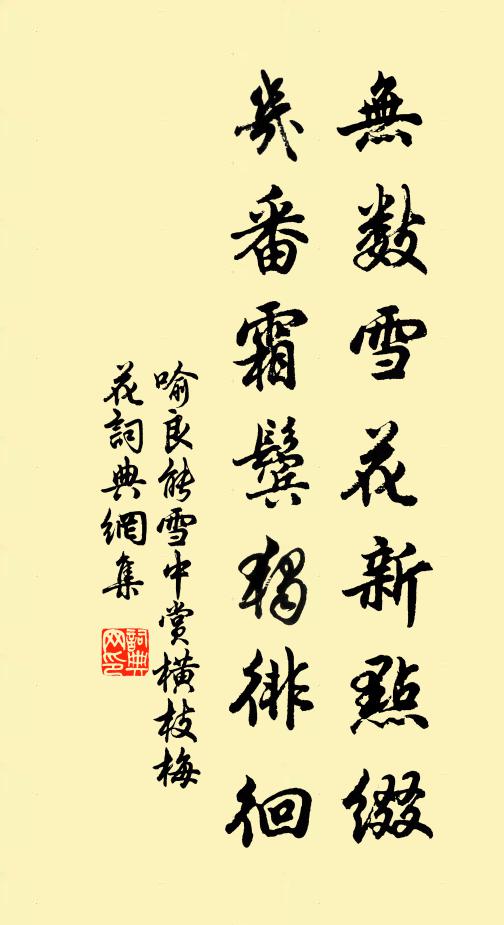 無數雪花新點綴
幾番霜鬢獨徘徊
喻良能雪中賞橫枝梅
花詞典網集
詞典
网印